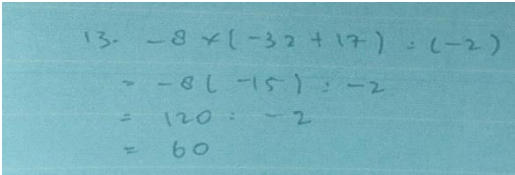 13. -8 x (-32 + 17) : (-2)
= -8 ( -15 ) : -2
= 120 : -2
= 60